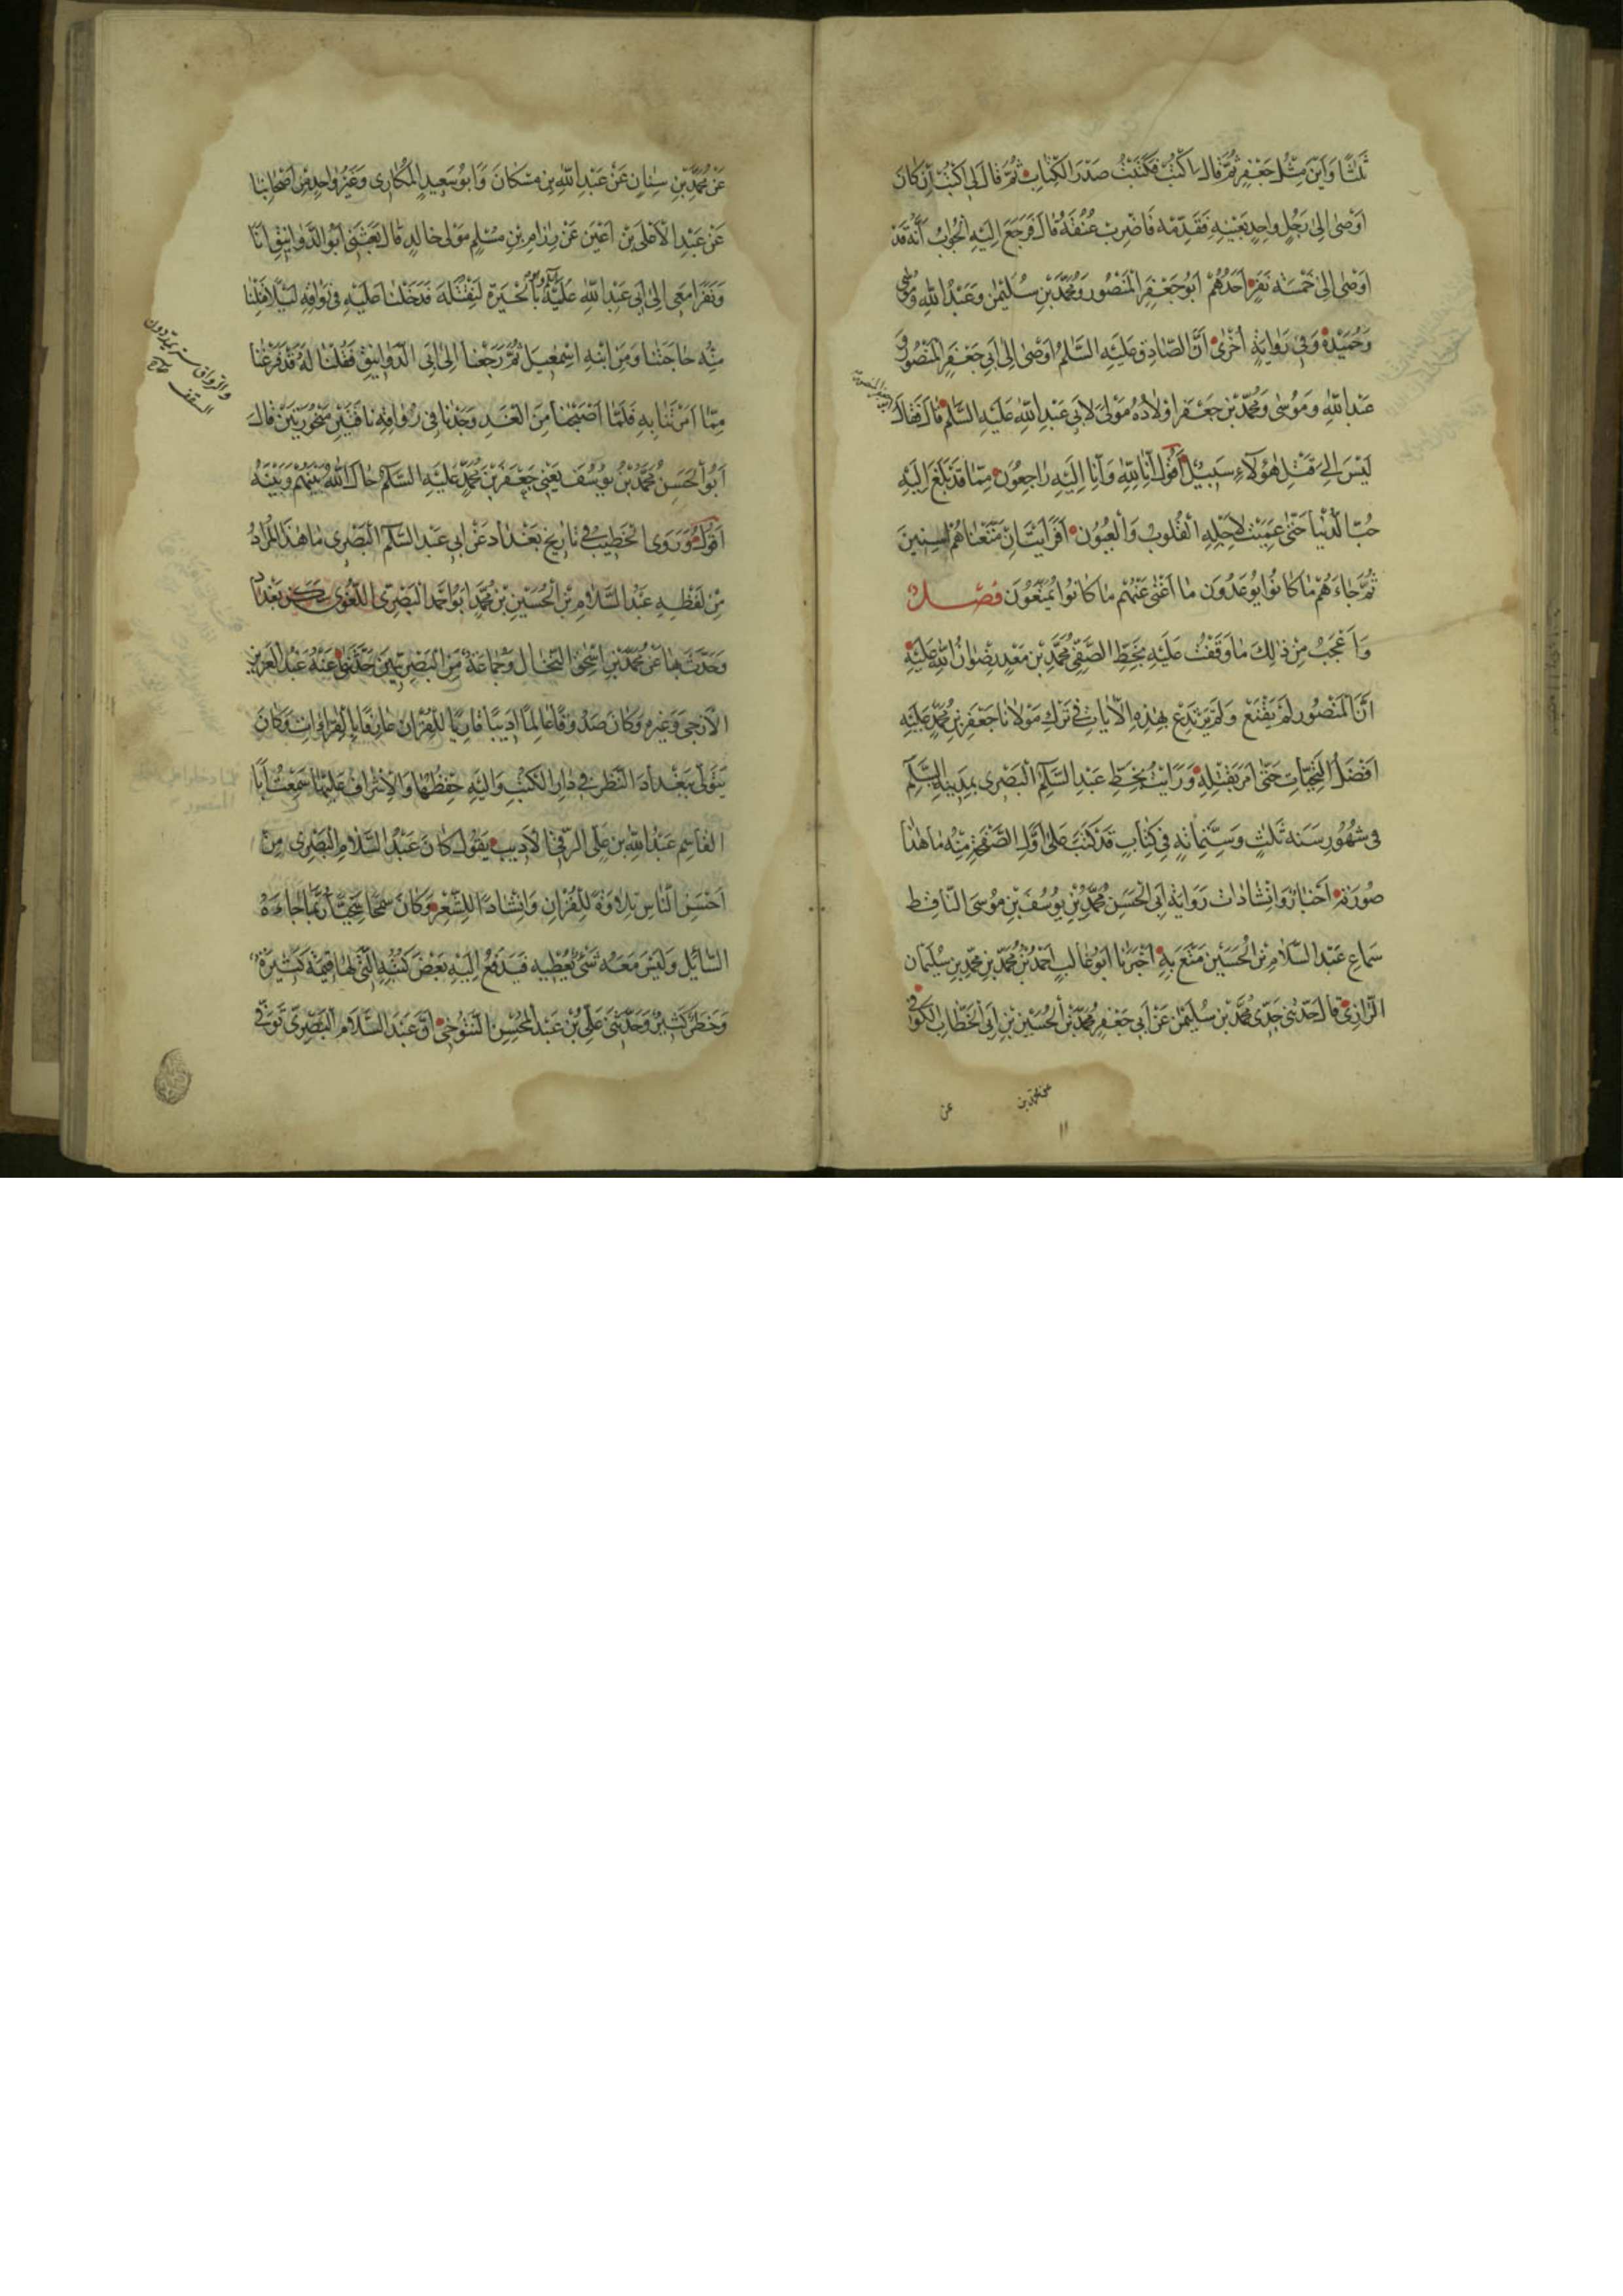 ثَلٰثًا وَاَيْنَ مِثْلُ جَعْفَرٍ ثُمَّ قٰالَ اكْتُبْ فَكَتَبْتُ صَدْرَ الْكِتٰابِ ثُمَّ قٰالَ لِى اكْتُبْ اِنْ كٰانَ
اَوْصٰى اِلىٰ رَجُلٍ وٰاحِدٍ بِعَيْنِهِ فَقَدِّمْهُ فَاضْرِبْ عُنُقَهُ قٰالَ فَرَجَعَ اِلَيْهِ الْجَوٰابُ اَنَّهُ قَدْ
اَوْصٰى اِلىٰ خَمْسَةِ نَفَرٍ اَحَدُهُمْ اَبُو جَعْفَرٍ الْمَنْصُورُ وَمُحَمَّدُ بْنُ سُلَيْمٰنَ وَعَبْدُ اللّٰهِ وَمُوسٰى
وَحُمَيْدَةُ وَفِى رِوٰايَةٍ اُخْرىٰ اَنَّ الصّٰادِقَ عَلَيْهِ السَّلٰمُ اَوْصٰى اِلىٰ اَبِى جَعْفَرٍ الْمَنْصُورِ وَ
عَبْدِ اللّٰهِ وَمُوسٰى وَمُحَمَّدِ بْنِ جَعْفَرٍ اَوْلٰادُهُ وَمَوْلىً لِاَبِى عَبْدِ اللّٰهِ عَلَيْهِ السَّلٰمُ قٰالَ فَقٰالَ
لَيْسَ اِلىٰ قَتْلِ هٰؤُلٰاءِ سَبِيْلٌ اَقُولُ اِنّٰا لِلّٰهِ وَاِنّٰا اِلَيْهِ رٰاجِعُوْنَ مِمّٰا قَدْ بَلَغَ اِلَيْهِ
حُبُّ الدُّنْيٰا حَتّٰى عَمِيَتْ لِاَجْلِهِ الْقُلُوبُ وَالْعُيُوْنُ اَفَرَاَيْتَ اِنْ مَتَّعْنٰاهُمْ سِنِينَ
ثُمَّ جٰاءَهُمْ مٰا كٰانُوا يُوعَدُونَ مٰا اَغْنىٰ عَنْهُمْ مٰا كٰانُوا يُمَتَّعُوْنَ فصـــل
وَاَعْجَبُ مِنْ ذٰلِكَ مٰا وَقَفْتُ عَلَيْهِ بِخَطِّ الصَّفِىِّ مُحَمَّدِ بْنِ مَعَدٍّ رِضْوٰانُ اللّٰهِ عَلَيْهِ
اَنَّ الْمَنْصُورَ لَمْ يَقْنَعْ وَلَمْ يَرْتَدِعْ بِهٰذِهِ الْاٰيٰاتِ فِى تَرْكِ مَوْلٰانٰا جَعْفَرِ بْنِ مُحَمَّدٍ عَلَيْهِ
اَفْضَلُ التَّحِيّٰاتِ حَتّٰى اَمَرَ بِقَتْلِهِ وَرَاَيْتُ بِخَطِّ عَبْدِ السَّلٰمِ الْبَصْرِى بِمَدِينَةِ السَّلٰمِ
فِى شُهُورِ سَنَةِ ثَلٰثٍ وَسِتِّمِائَةٍ فِى كِتٰابٍ قَدْ كَتَبَ عَلىٰ اَوَّلِ الصَّفْحَةِ مِنْهُ مٰا هٰذٰا
صُورَتُهُ اَخْبٰارٌ وَاِنْشٰادٰات رِوٰايَة اَبِى الْحَسَنِ مُحَمَّدِ بْنِ يُوسُفَ بْنِ مُوسَى النّٰاقِطِ
سَمٰاعِ عَبْدِ السَّلٰامِ بْنِ الْحُسَيْنِ مَتَّعَ بِهِ اَخْبَرَنٰا اَبُو غٰالِبٍ اَحْمَدُ بْنُ مُحَمَّدِ بْنِ مُحَمَّدِ بْنِ سُلَيْمٰان
الزُّرٰارِىُّ قٰالَ حَدَّثَنِى جَدِّى مُحَمَّدُ بْنُ سُلَيْمٰنَ عَنْ اَبِى جَعْفَرٍ مُحَمَّدِ بْنِ الْحُسَيْنِ بْنِ اَبِى الْخَطّٰابِ الْكُوفِى
عن محمد بن
عن
عَنْ مُحَمَّدِ بْنِ سِنٰانٍ عَنْ عَبْدِ اللّٰهِ بْنِ مسْكٰانَ وَاَبُو سَعِيدٍ الْمُكٰارِى وَغَيْرُ وٰاحِدٍ مِنْ اَصْحٰابِنٰا
عَنْ عَبْدِ الْاَعْلَى بْنِ اَعْيَنَ عَنْ رِزٰامِ بْنِ مُسْلِمٍ مَوْلىٰ خٰالِدٍ قٰالَ بَعَثَنِى اَبُو الدَّوٰانِيْقِ اَنَا
وَنَفَرًا مَعِى اِلىٰ اَبِى عَبْدِ اللّٰهِ عَلَيْهِ السلم وهو بِالْحِيْرَةِ لِنَقْتُلَهُ فَدَخَلْنٰا عَلَيْهِ فِى رِوٰاقِهِ لَيْلًا فَنِلْنٰا
مِنْهُ حٰاجَتَنٰا وَمِنِ ابْنِهِ اِسْمٰعِيلَ ثُمَّ رَجَعْنٰا اِلىٰ اَبِى الدَّوٰانِيْقِ فَقُلْنٰا لَهُ قَدْ فَرَغْنٰا
مِمّٰا اَمَرْتَنٰا بِهِ فَلَمّٰا اَصْبَحْنٰا مِنَ الْغَدِ وَجَدْنٰا فِى رِوٰاقِهِ نٰاقَتَيْنِ مَنْحُورَتَيْنِ قٰالَ
اَبُو الْحَسَنِ مُحَمَّدُ بْنُ يُوسُفَ يَعْنِى جَعْفَرَ بْنَ مُحَمَّدٍ عَلَيْهِ السَّلٰمُ حٰالَ اللّٰهُ بَيْنَهُمْ وَبَيْنَهُ
اَقُولُ وَرَوَى الْخَطِيْبُ فِى تٰارِيخِ بَغْدٰاد عَنْ اَبِى عَبْدِ السَّلٰمِ الْبَصْرِى مٰا هٰذَا الْمُرٰادُ
مِنْ لَفْظِهِ عَبْدُ السَّلٰامِ بْنُ الْحُسَيْنِ بْنِ مُحَمَّدٍ اَبُو اَحْمَدَ الْبَصْرِى اللُّغَوِى سكن بَغْدٰاد
وَحَدَّثَ بِهٰا عَنْ مُحَمَّدِ بْنِ اِسْحٰقَ التَّحّٰال وَجَمٰاعَة مِنَ الْبَصْرِيِّيْنَ حَدَّثَنِى عَنْهُ عَبْدُ الْعَزِيز
الْاَزَجِى وَغَيْرُه وَكٰانَ صَدُوقًا عٰالِمًا اَدِيبًا قٰارِيًا لِلْقُرْآنِ عٰارِفًا بِالْقِرٰاءٰاتِ وَكٰانَ
يَتَوَلّٰى بِبَغْدٰادَ النَّظَرَ فِى دٰارِ الْكُتُبِ وَاِلَيْهِ حِفْظُهٰا وَالْاِشْرٰافُ عَلَيْهٰا سَمِعْتُ اَبَا
الْقٰاسِمِ عَبْدَ اللّٰهِ بْنَ عَلِىٍّ الرَّقِّىَّ الْاَدِيب يَقُولُ كٰانَ عَبْدُ السَّلٰامِ الْبَصْرِى مِنْ
اَحْسَنِ النّٰاسِ تِلٰاوَةً لِلْقُرْاٰنِ وَاِنْشٰادًا لِلشِّعْرِ وَكٰانَ سَمْحًا سَخِيًّا رُبَّمٰا جٰاءَهُ
السّٰائِلُ وَلَيْسَ مَعَهُ شَىْءٌ يُعْطِيهِ فَيَدْفَعُ اِلَيْهِ بَعْضَ كُتُبِهِ الَّتِى لَهٰا قِيمَةٌ كَثِيْرَةٌ
وَخَطَرٌ كَبِيْرٌ وَحَدَّثَنِى عَلِىُّ بْنُ عَبْدِ الْمُحْسِنِ التَّنُوخِى اَنَّ عَبْدَ السَّلٰام الْبَصْرِىَّ تُوُفِّىَ
والرواق ستر يمد دون
السقف